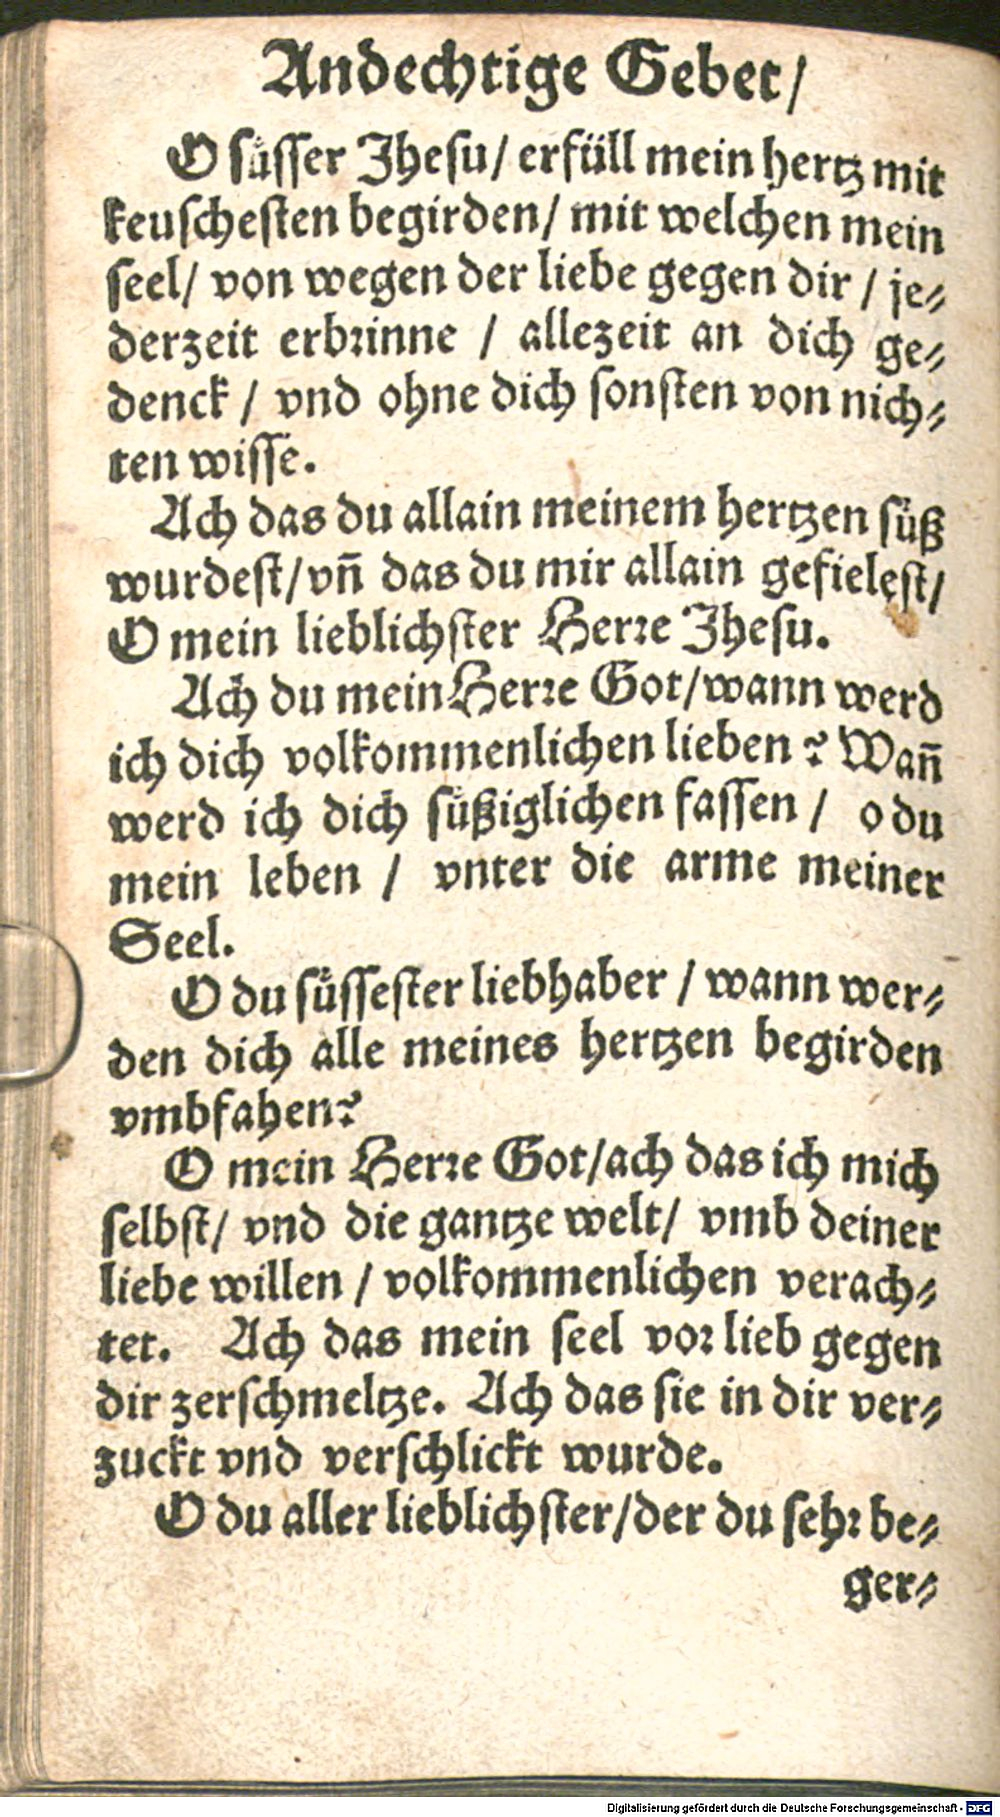 Andechtige Gebet/
O süsser Jhesu/ erfüll mein hertz mit
keuschesten begirden/ mit welchen mein
seel/ von wegen der liebe gegen dir / je-
derzeit erbrinne / allezeit an dich ge-
denck / vnd ohne dich sonsten von nich-
ten wisse.
Ach das du allain meinem hertzen süß
wurdest/ vñ das du mir allain gefielest/
O mein lieblichster Herre Jhesu.
Ach du mein Herre Got/ wann werd
ich dich volkommenlichen lieben? Wañ
werd ich dich süßiglichen fassen / o du
mein leben / vnter die arme meiner
Seel.
O du süssester liebhaber / wann wer-
den dich alle meines hertzen begirden
vmbfahen?
O mein Herre Got/ ach das ich mich
selbst/ vnd die gantze welt/ vmb deiner
liebe willen / volkommenlichen verach-
tet. Ach das mein seel vor lieb gegen
dir zerschmeltze. Ach das sie in dir ver-
zuckt vnd verschlickt wurde.
O du aller lieblichster/ der du sehr be-
ger-
Digitalisierung gefördert durch die Deutsche Forschungsgemeinschaft - DFG